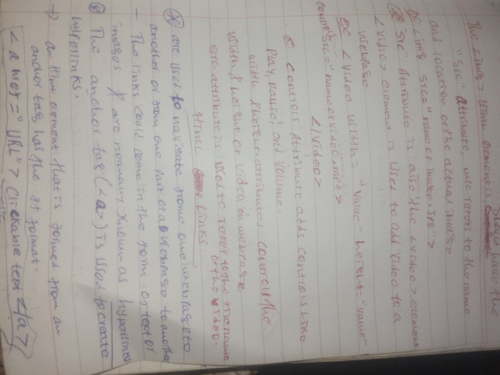 The <img> html element is
"Src" attribute, which refers to the name
and location of the actual image
ex <img src="name of image.jpg">
Src Attribute is also the <video> element
<Video> element is used to add video to a
webpage
ex <Video width="value" height="value"
src="name of video.mp4">
</Video>
controls Attribute adds controls like
Play, pause, and volume.
width & height attributes control the
width & height of video on webpage
src attribute is used to refer to the file name
of the video.
Html Links
are used to navigate from one webpage to
another or from one part of a webpage to another
- The links could come in the form of text or
images & are normally known as hyperlinks
The anchor tag (<a>) is used to create
hyperlinks.
→ an html element that is formed from an
anchor tag has the format
<a href="URL"> Clickable text </a>